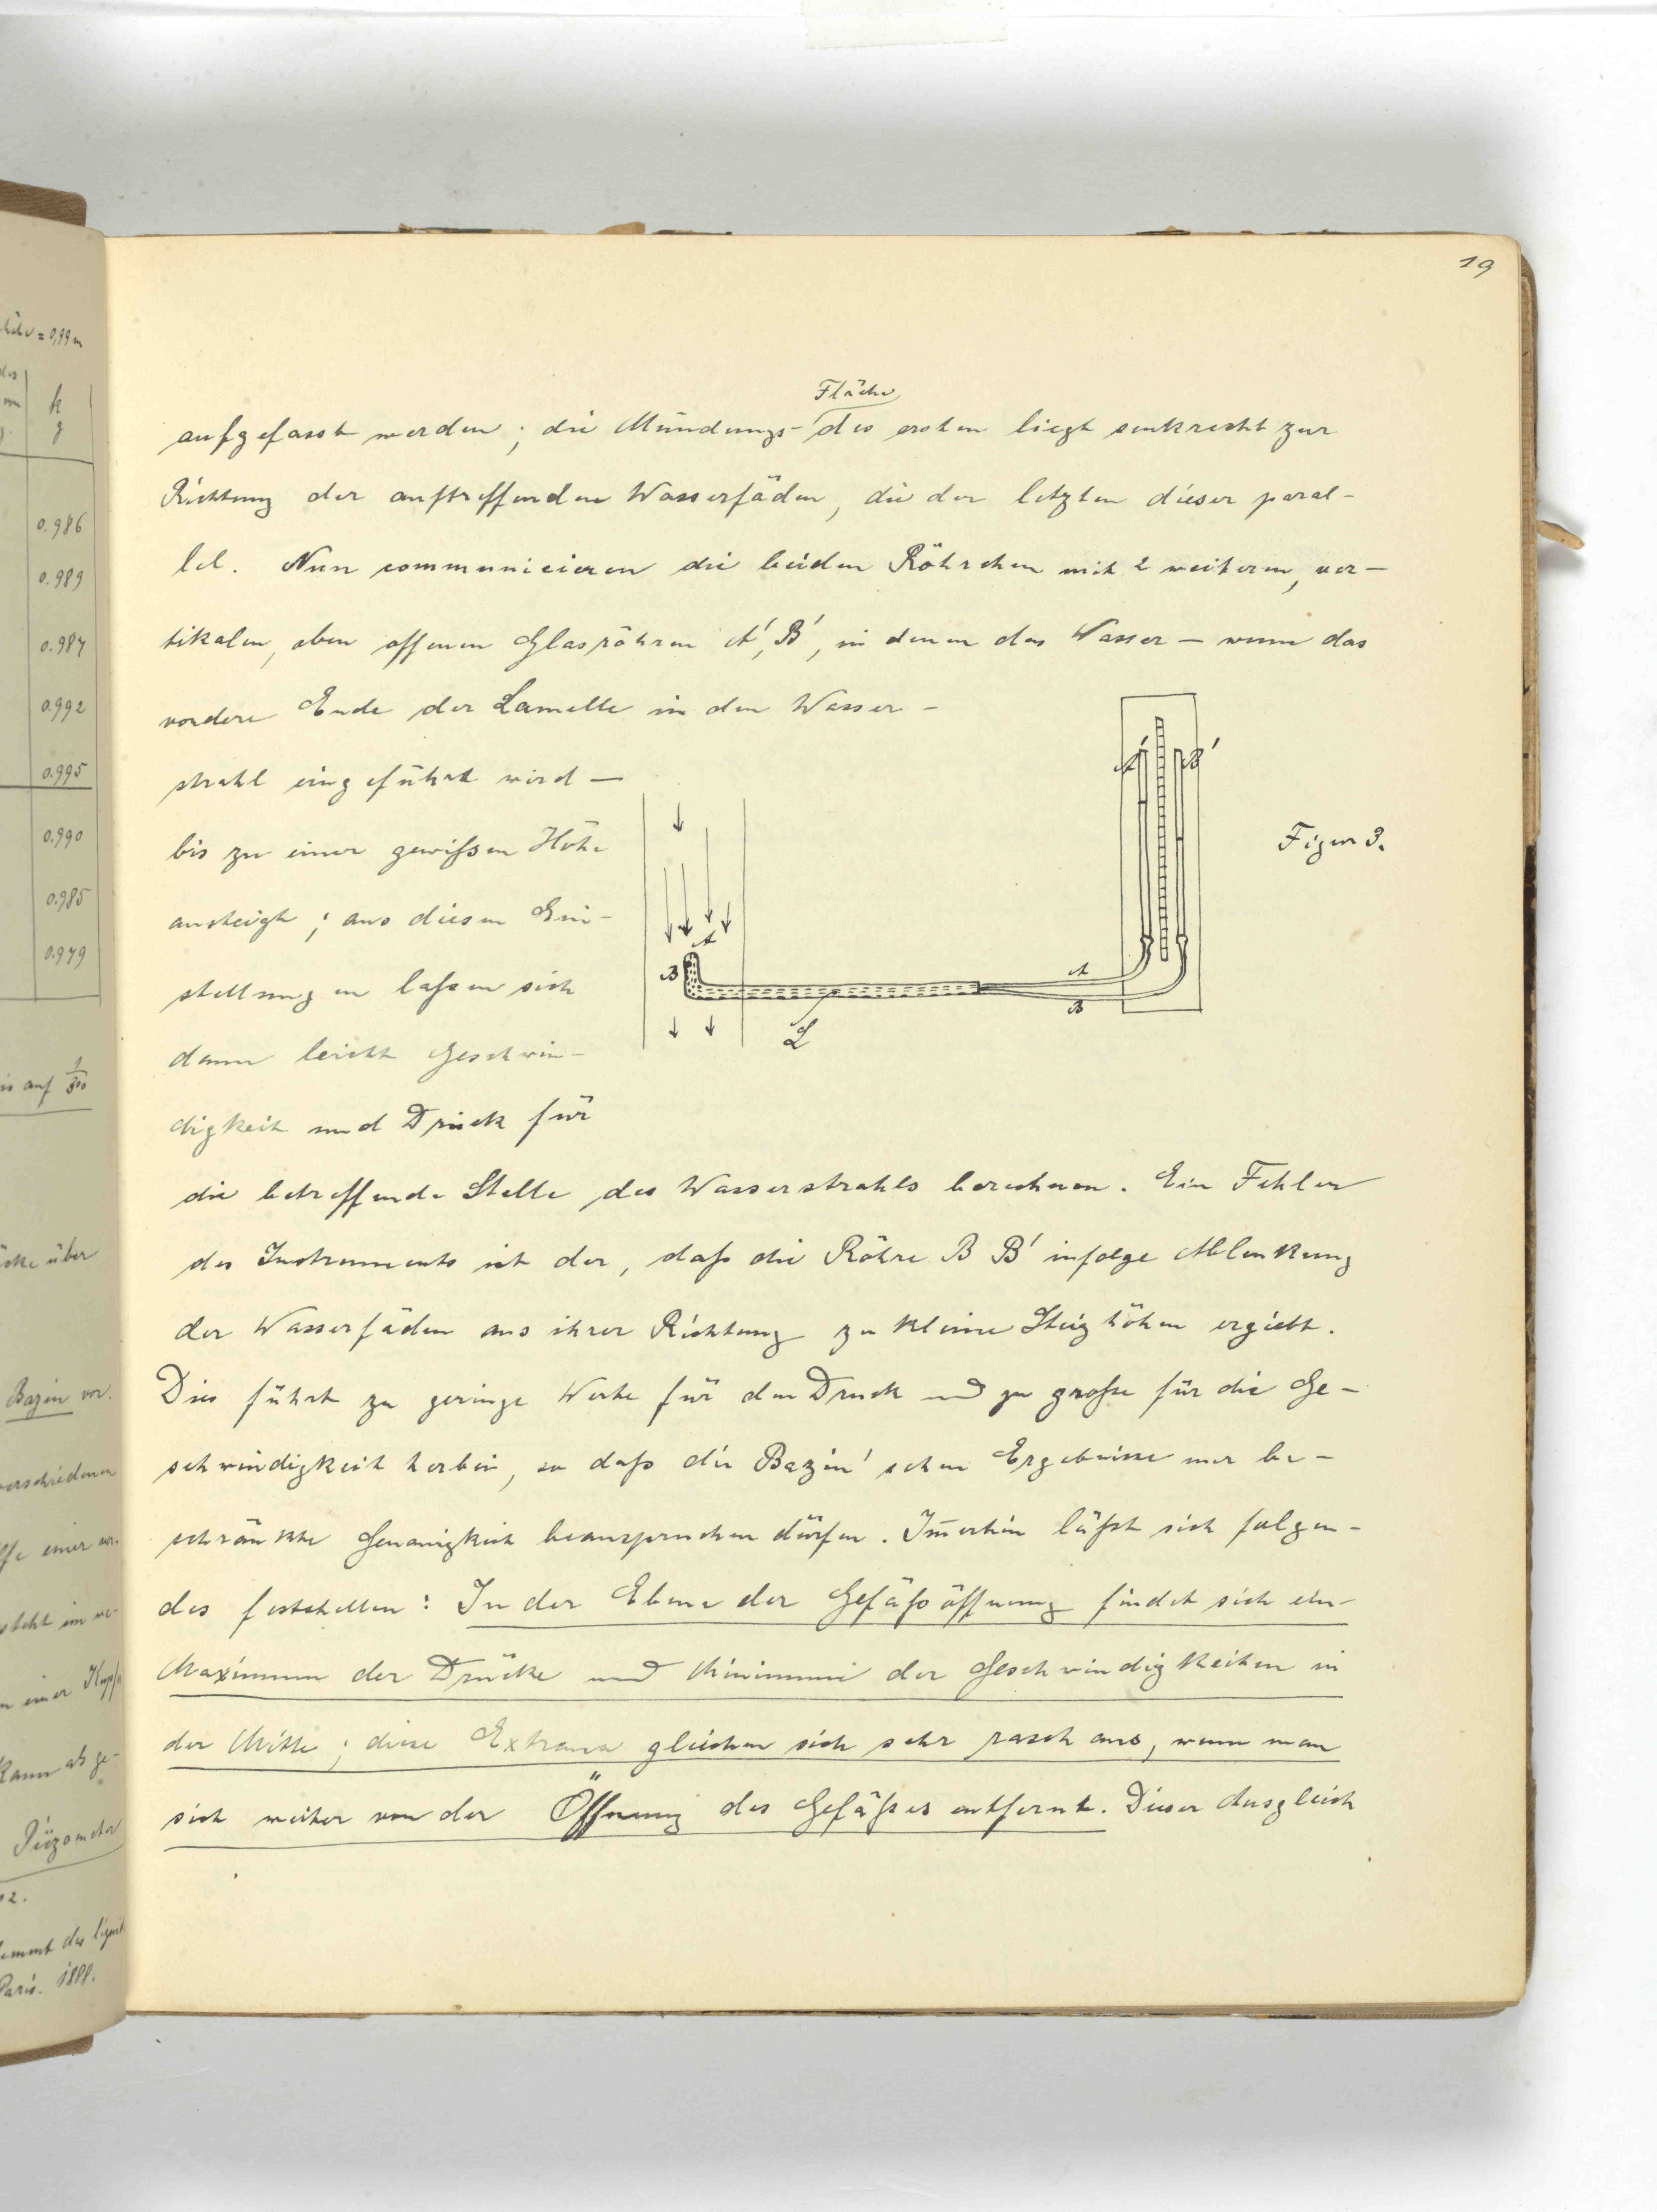 19
Fläche
aufgefasst werden; die Mündungs- des ersten liegt senkrecht zur
Richtung der auftreffenden Wasserfäden, die der letzten dieser paral-
lel. Nun communicieren die beiden Röhrchen mit 2 weiteren, ver-
tikalen, oben offenen Glasröhren A', B', in denen das Wasser — wenn das
vordere Ende der Lamelle in den Wasser-
strahl eingeführt wird —
bis zu einer gewißen Höhe
ansteigt; aus diesen Ein-
stellungen laßen sich
dann leicht Geschwin-
digkeit und Druck für
A' B'
Figur 3.
A
B
A
B
L
die betreffende Stelle des Wasserstrahls berechnen. Ein Fehler
des Instruments ist der, daß die Röhre B B' infolge Ablenkung
der Wasserfäden aus ihrer Richtung zu kleine Steighöhen ergiebt.
Dies führt zu geringe Werte für den Druck und zu große für die Ge-
schwindigkeit herbei, so daß die Bazin'schen Ergebnisse nur be-
schränkte Genauigkeit beanspruchen dürfen. Im̄erhin läßt sich folgen-
des feststellen: In der Ebene der Gefäßöffnung findet sich ein
Maximum der Drücke und Minimum der Geschwindigkeiten in
der Mitte; diese Extrema gleichen sich sehr rasch aus, wenn man
sich weiter von der Öffnung des Gefäßes entfernt. Dieser Ausgleich
0,99 m
k
g
0.986
0.989
0.987
0.992
0.995
0.990
0.985
0.979
auf 1/300
über
Bazin vor.
verschiedenen
einer
einer
kann abge-
Piëzometer
Paris. 1888.